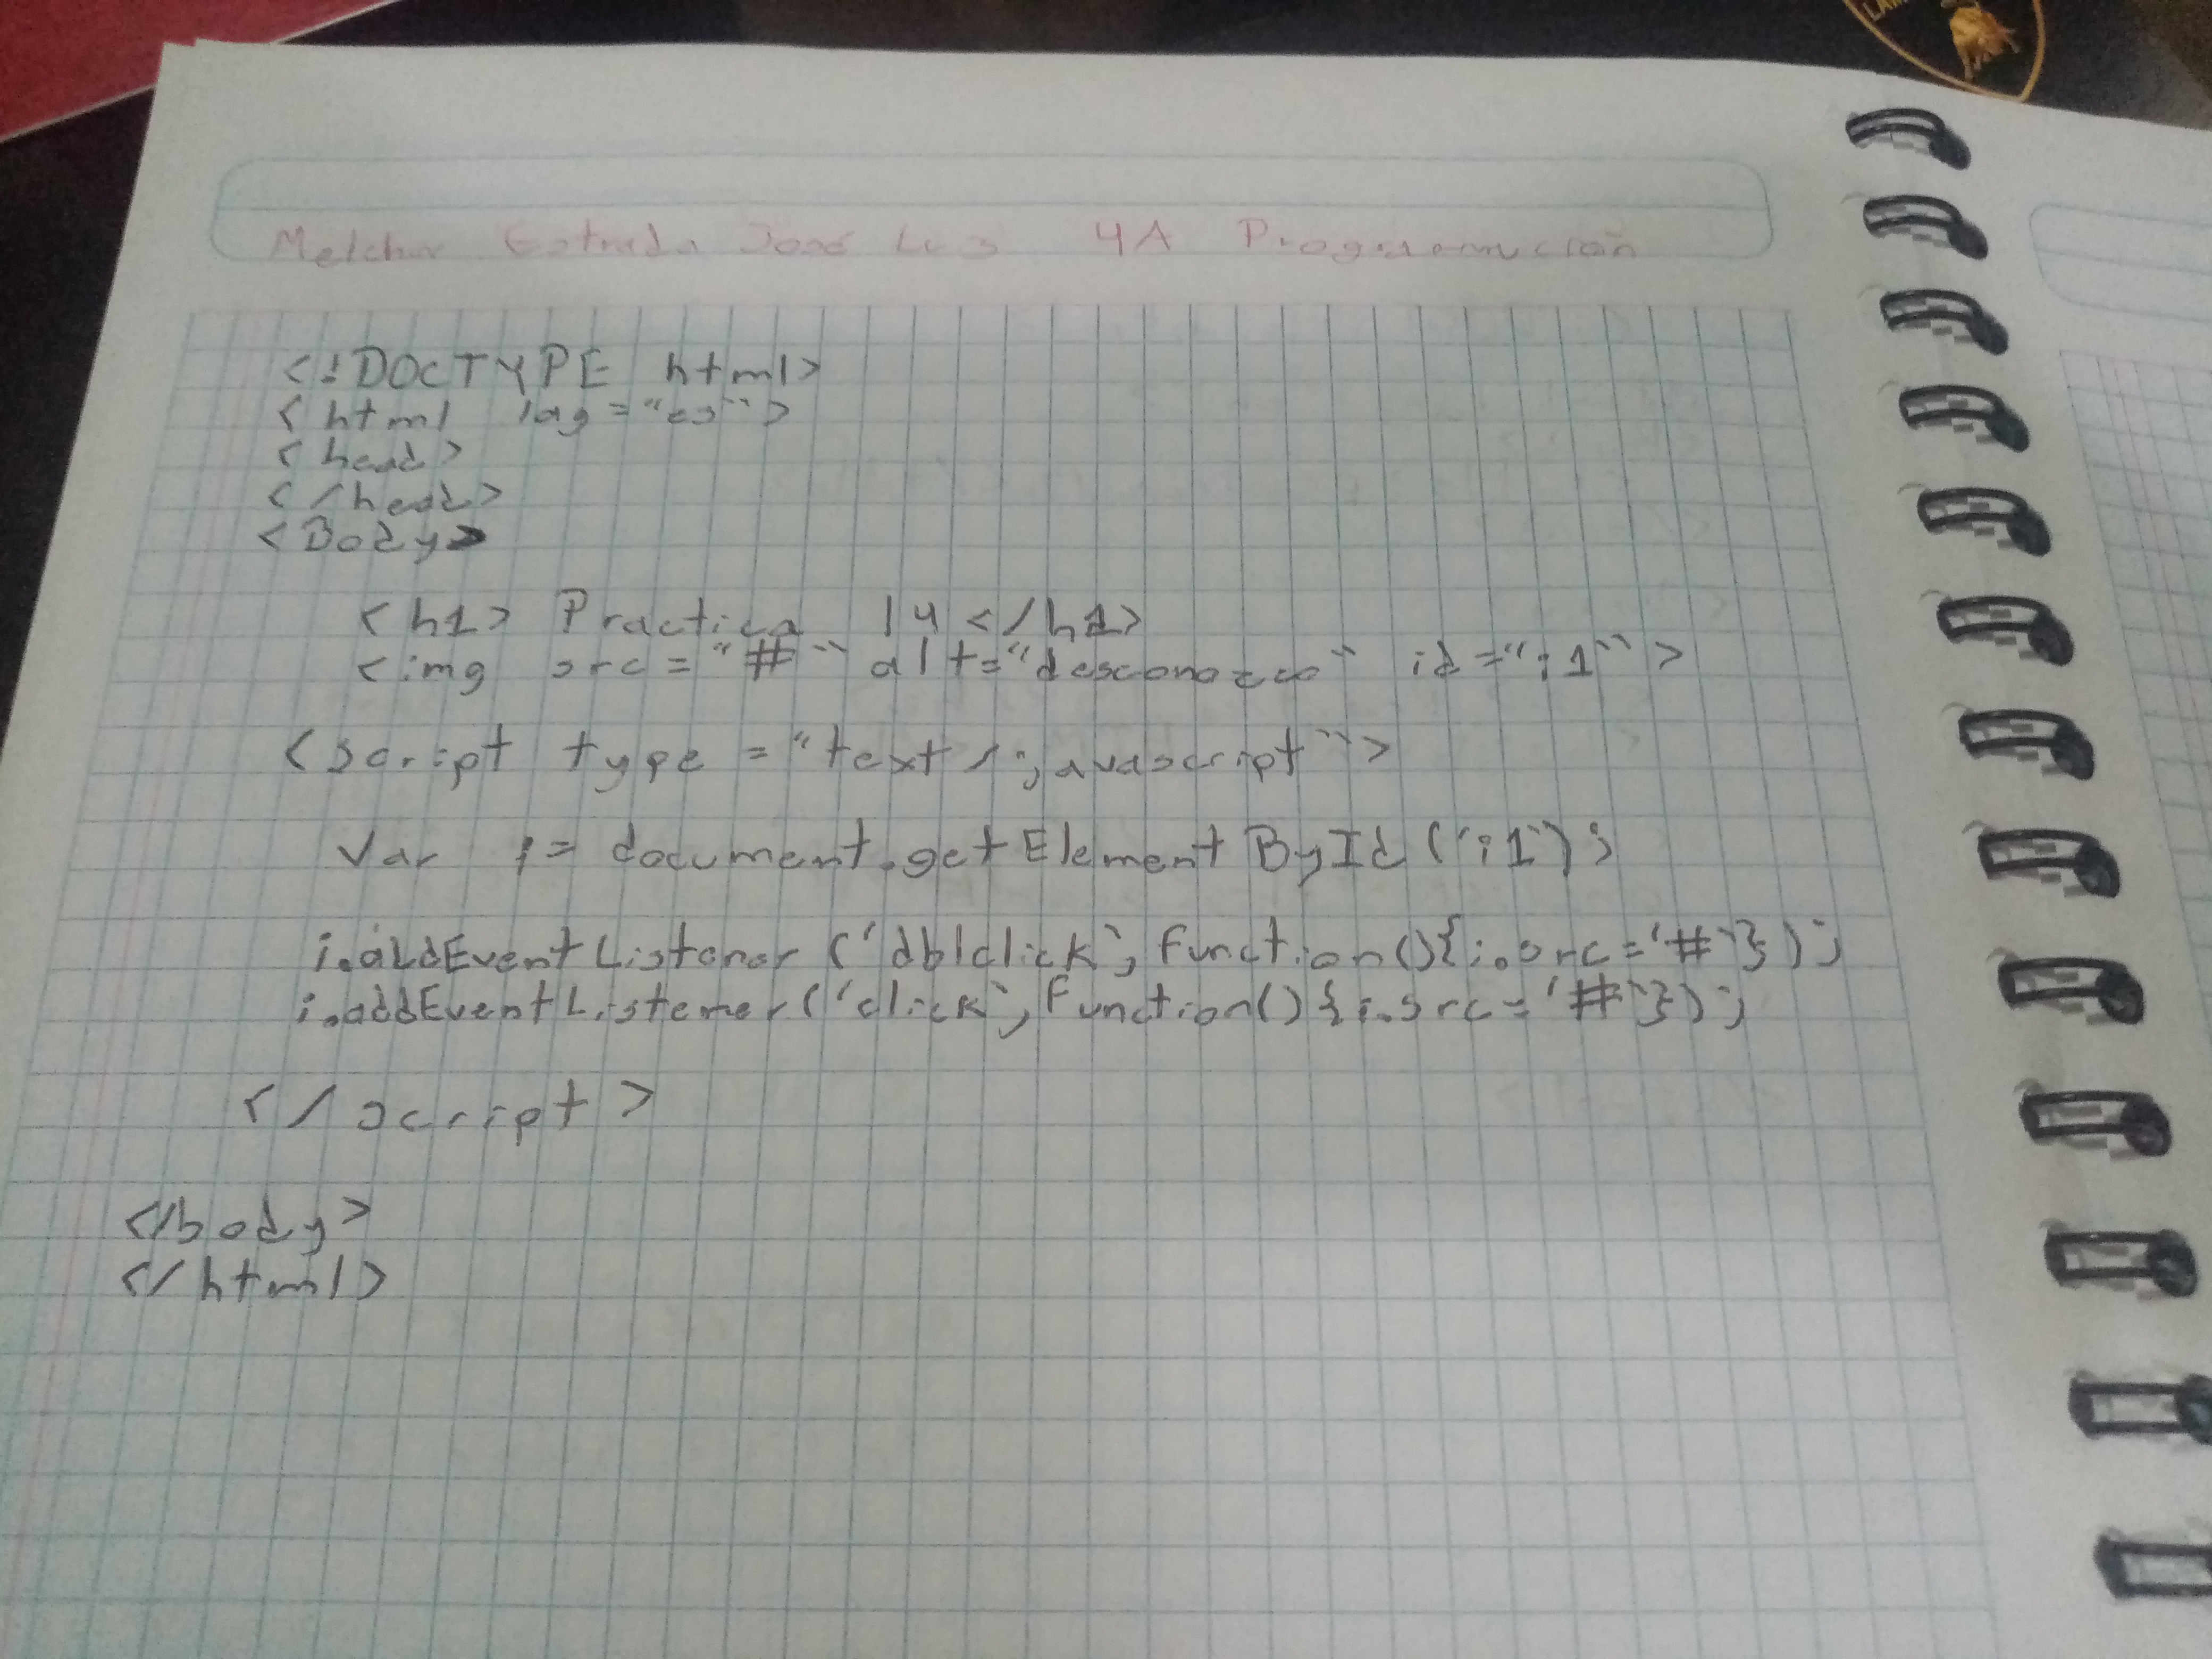 LAM
Melchor Estrada José Luis 4A Programación
<!DOCTYPE html>
<html lag="es">
<head>
</head>
<Body>
<h1> Practica 14 </h1>
<img src="#" alt="desconozco" id="i1">
<script type="text/javascript">
var i= document.getElementById('i1');
i.addEventListener('dblclick', function(){i.src='#'});
i.addEventListener('click', function(){i.src='#'});
</script>
</body>
</html>